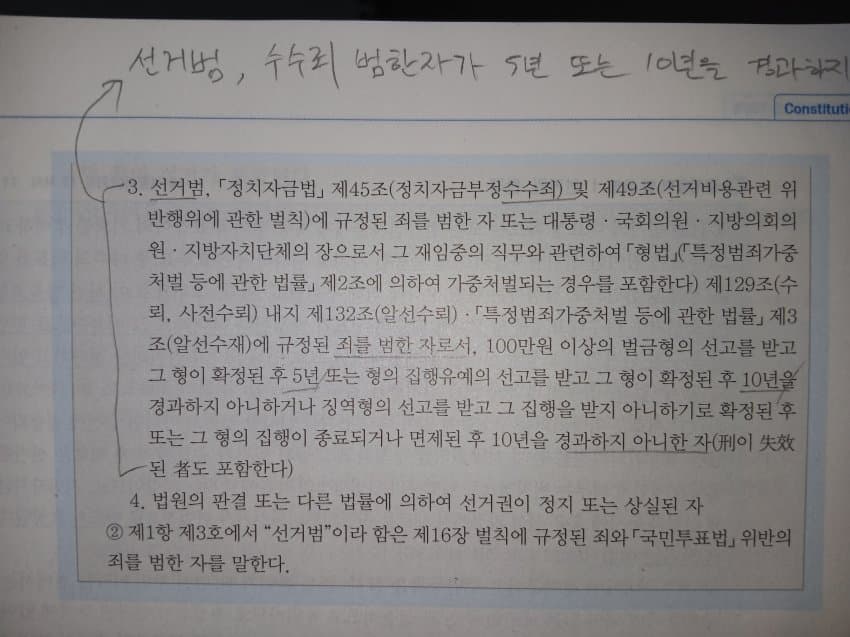 선거범, 수수뢰 범한자가 5년 또는 10년을 경과하지
Constituti
3. 선거범, 「정치자금법」 제45조(정치자금부정수수죄) 및 제49조(선거비용관련 위
반행위에 관한 벌칙)에 규정된 죄를 범한 자 또는 대통령·국회의원·지방의회의
원·지방자치단체의 장으로서 그 재임중의 직무와 관련하여 「형법」(「특정범죄가중
처벌 등에 관한 법률」 제2조에 의하여 가중처벌되는 경우를 포함한다) 제129조(수
뢰, 사전수뢰) 내지 제132조(알선수뢰)·「특정범죄가중처벌 등에 관한 법률」 제3
조(알선수재)에 규정된 죄를 범한 자로서, 100만원 이상의 벌금형의 선고를 받고
그 형이 확정된 후 5년 또는 형의 집행유예의 선고를 받고 그 형이 확정된 후 10년을
경과하지 아니하거나 징역형의 선고를 받고 그 집행을 받지 아니하기로 확정된 후
또는 그 형의 집행이 종료되거나 면제된 후 10년을 경과하지 아니한 자(刑이 失效
된 者도 포함한다)
4. 법원의 판결 또는 다른 법률에 의하여 선거권이 정지 또는 상실된 자
② 제1항 제3호에서 “선거범”이라 함은 제16장 벌칙에 규정된 죄와 「국민투표법」 위반의
죄를 범한 자를 말한다.